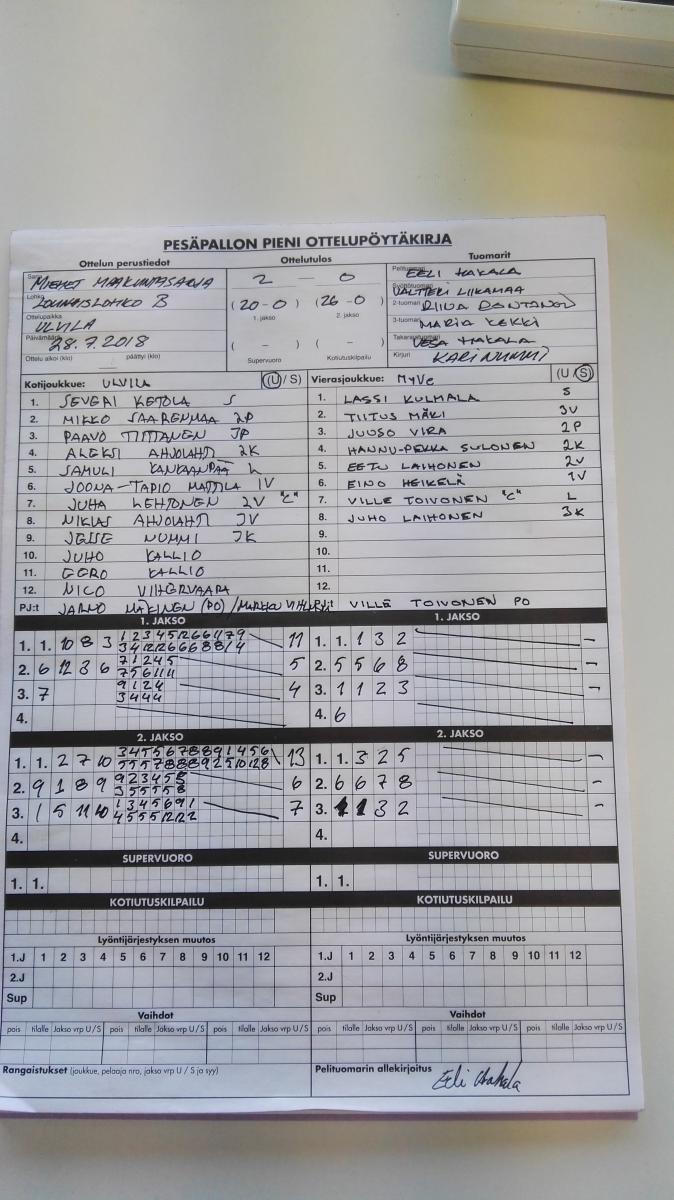 PESÄPALLON PIENI OTTELUPÖYTÄKIRJA
Ottelun perustiedot Ottelutulos Tuomarit
Sarja MIEHET MAAKUNTASARJA
Lohko LOUNAISLOHKO B
Ottelupaikka ULVILA
Päivämäärä 28.7.2018
Ottelu alkoi (klo) päättyi (klo)
2 — 0
(20-0) (26-0)
1. jakso 2. jakso
( - ) ( - )
Supervuoro Kotiutuskilpailu
Pelituomari EELI HAKALA
Syöttötuomari VALTTERI LIIKAMAA
2-tuomari RIINA
3-tuomari MARIA KEKKI
Takarajatuomari VESA HAKALA
Kirjuri KARI NUMMI
Kotijoukkue: ULVILA (U / S)
1. SEVERI KETOLA S
2. MIKKO SAARENMAA 2P
3. PAAVO TIITTANEN 3P
4. ALEKSI AHJOLAHTI 2K
5. SAMULI KANKAANPÄÄ L
6. JOONA-TAPIO MATTILA 1V
7. JUHA LEHTONEN 2V "C"
8. NIKLAS AHJOLAHTI 3V
9. JESSE NUMMI 3K
10. JUHO KALLIO
11. EERO KALLIO
12. NICO VIHERVAARA
PJ:t JARMO MÄKINEN (PO) / MARKKU
Vierasjoukkue: MyVe (U / S)
1. LASSI KULMALA S
2. TIITUS MÄKI 3V
3. JUUSO VIRA 2P
4. HANNU-PEKKA SULONEN 2K
5. EETU LAIHONEN 2V
6. EINO HEIKELÄ 1V
7. VILLE TOIVONEN "C" L
8. JUHO LAIHONEN 3K
9.
10.
11.
12.
PJ:t VILLE TOIVONEN PO
1. JAKSO
1. 1. 10 8 3 11
2. 6 12 3 6 5
3. 7 4
4.
1. JAKSO
1. 1. 1 3 2 –
2. 5 5 6 8 –
3. 1 1 2 3 –
4. 6
2. JAKSO
1. 1. 2 7 10 13
2. 9 1 8 9 6
3. 1 5 11 10 7
4.
2. JAKSO
1. 1. 3 2 5 –
2. 6 6 7 8 –
3. 1 3 2 –
4.
SUPERVUORO
1. 1.
SUPERVUORO
1. 1.
KOTIUTUSKILPAILU
KOTIUTUSKILPAILU
Lyöntijärjestyksen muutos
1.J 1 2 3 4 5 6 7 8 9 10 11 12
2.J
Sup
Lyöntijärjestyksen muutos
1.J 1 2 3 4 5 6 7 8 9 10 11 12
2.J
Sup
Vaihdot
pois tilalle Jakso vrp U / S pois tilalle Jakso vrp U / S pois tilalle Jakso vrp U / S
Vaihdot
pois tilalle Jakso vrp U / S pois tilalle Jakso vrp U / S pois tilalle Jakso vrp U / S
Rangaistukset (joukkue, pelaaja nro, jakso vrp U / S ja syy)
Pelituomarin allekirjoitus Eeli Hakala